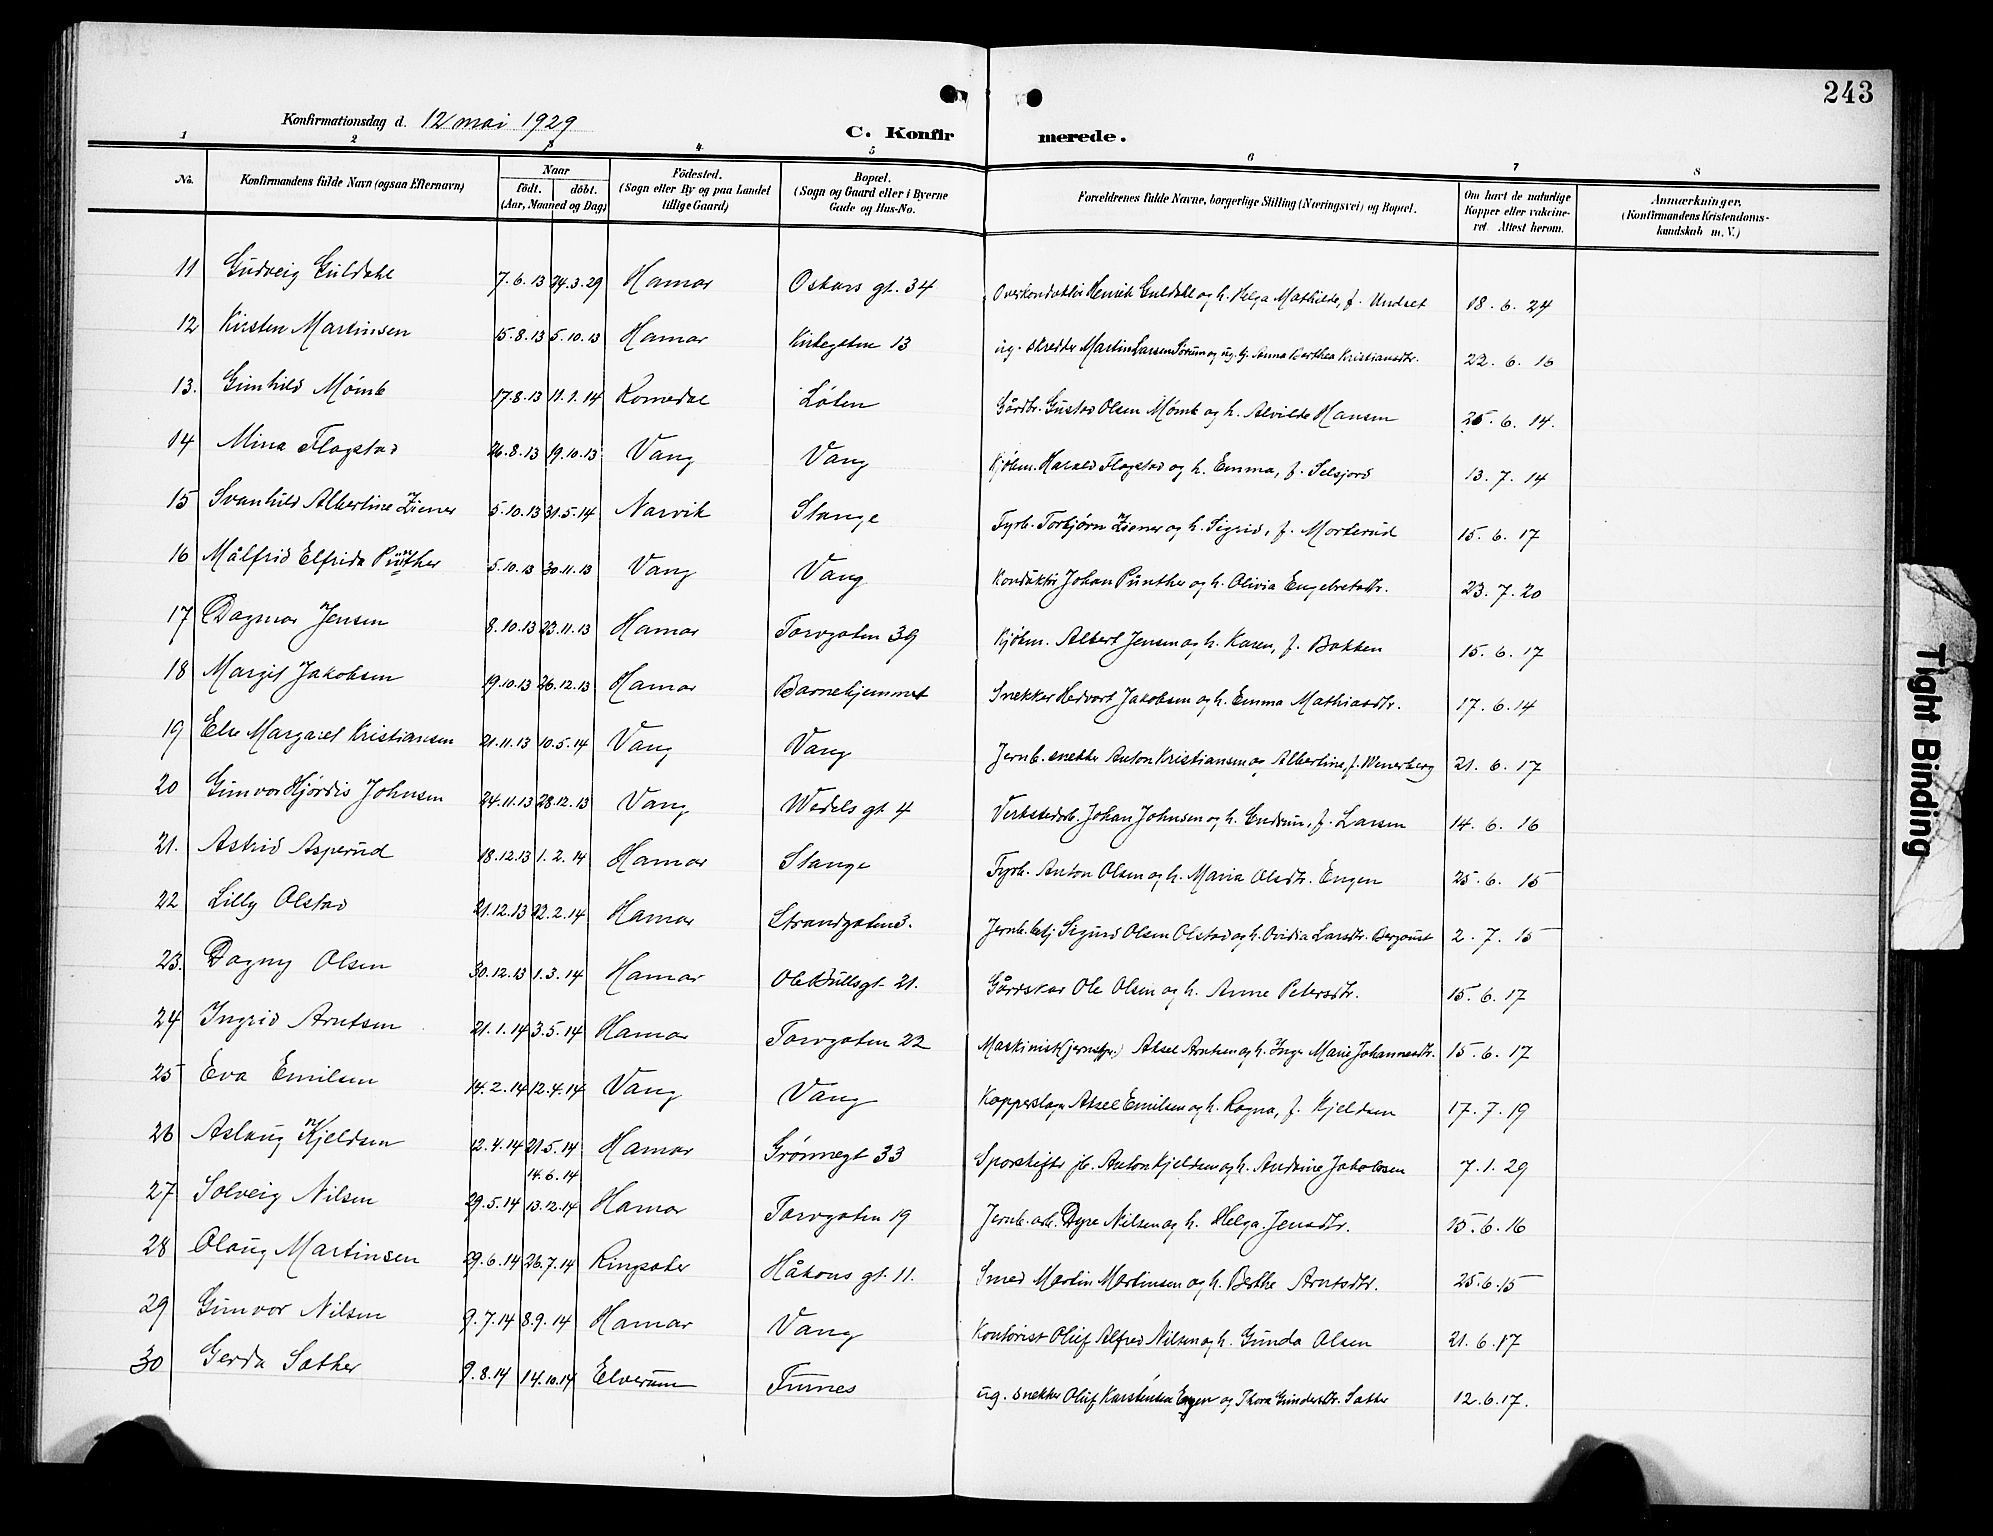 243
Konfirmationsdag d. 12 mai 1929
C. Konfirmerede.
1 2 3 4 5 6 7 8
No. Konfirmandens fulde Navn (ogsaa Efternavn) Naar født. døbt. (Aar, Maaned og Dag) Fødested. (Sogn eller By og paa Landet tillige Gaard) Bopæl. (Sogn og Gaard eller i Byerne Gade og Hus-No. Forældrenes fulde Navne, borgerlige Stilling (Næringsvei) og Bopæl. Om havt de naturlige Kopper eller vakcineret. Attest herom. Anmærkninger. (Konfirmandens Kristendomskundskab m. V.)
11 Gudveig Guldahl 7.6.13 24.3.29 Hamar Oskars gt. 34 Overkonduktør Henrik Guldahl og h. Helga Mathilde, f. Undset 18.6.24
12 Kirsten Martinsen 15.8.13 5.10.13 Hamar Kirkegaten 13 ug. skredder Martin Larsen Sørum og ug. tj. Anna Berthea Kristiansdtr. 22.6.16
13. Gunhild Mømb 17.8.13 11.1.14 Romedal Løten Gårdbr. Gustav Olsen Mømb og h. Alvilde Hansen 25.6.14.
14 Mina Flagstad 26.8.13 19.10.13 Vang Vang Kjøbm. Harald Flagstad og h. Emma, f. Selsjord 13.7.14
15 Svanhild Albertine Ziener 5.10.13 31.5.14 Narvik Stange Fyrb. Torbjørn Ziener og h. Sigrid, f. Morterud 15.6.17
16 Målfrid Elfrida Pünther 5.10.13 30.11.13 Vang Vang Konduktør Johan Pünther og h. Olivia Engebretsdtr. 23.7.20
17 Dagmar Jensen 8.10.13 23.11.13 Hamar Torvgaten 39 Kjøbm. Albert Jensen og h. Karen, f. Bakken 15.6.17
18 Margit Jakobsen 19.10.13 26.12.13 Hamar Barnehjemmet Snekker Hedvart Jakobsen og h. Emma Mathiasdtr. 17.6.14
19 Else Margaret Kristiansen 21.11.13 10.5.14 Vang Vang Jernb. snekker Anton Kristiansen og Albertine, f. Wenerberg 21.6.17
20 Gunvor Hjørdis Johnsen 24.11.13 28.12.13 Vang Wedels gt 4 Verkstedarb. Johan Johnsen og h. Gudrun, f. Larsen 14.6.16
21. Astrid Asperud 18.12.13 1.2.14 Hamar Stange Fyrb. Anton Olsen og h. Maria Olsdtr. Engen 25.6.15
22 Lilly Olstad 21.12.13 22.2.14 Hamar Strandgaten 3. Jernb. betj Sigurd Olsen Olstad og h. Ovidia Larsdtr. 2.7.15
23. Dagny Olsen 30.12.13 1.3.14 Hamar Ole Bullsgt. 21. Gårdskar Ole Olsen og h. Anne Petersdtr. 15.6.17
24 Ingrid Arntsen 21.1.14 3.5.14 Hamar Torvgaten 22 Maskinist Aksel Arntsen og h. Inga Marie Johannesdtr. 15.6.17
25 Eva Emilsen 14.2.14 12.4.14 Vang Vang Kopperslager Aksel Emilsen og h. Ragna, f. Kjeldsen 17.7.19
26 Aslaug Kjeldsen 12.4.14 21.5.14 Hamar Grønnegt 33 Sporskifter jb. Anton Kjeldsen og h. Andrine Jakobsen 7.1.29
14.6.14
27 Solveig Nilsen 29.5.14 13.12.14 Hamar Torvgaten 19 Jernb. arb. Dyre Nilsen og h. Helga Jensdtr. 15.6.16
28 Olaug Martinsen 29.6.14 26.7.14 Ringsaker Håkons gt. 11. Smed Martin Martinsen og h. Berthe Arntsdtr. 25.6.15
29 Gunvor Nilsen 9.7.14 8.9.14 Hamar Vang Kontorist Oluf Alfred Nilsen og h. Gunda Olsen 21.6.17
30 Gerda Sæther 9.8.14 14.10.14 Elverum Furnes ug. snekker Oluf Karstensen Engen og Thora Gundersdtr. Sæther 12.6.17.
Tight Binding